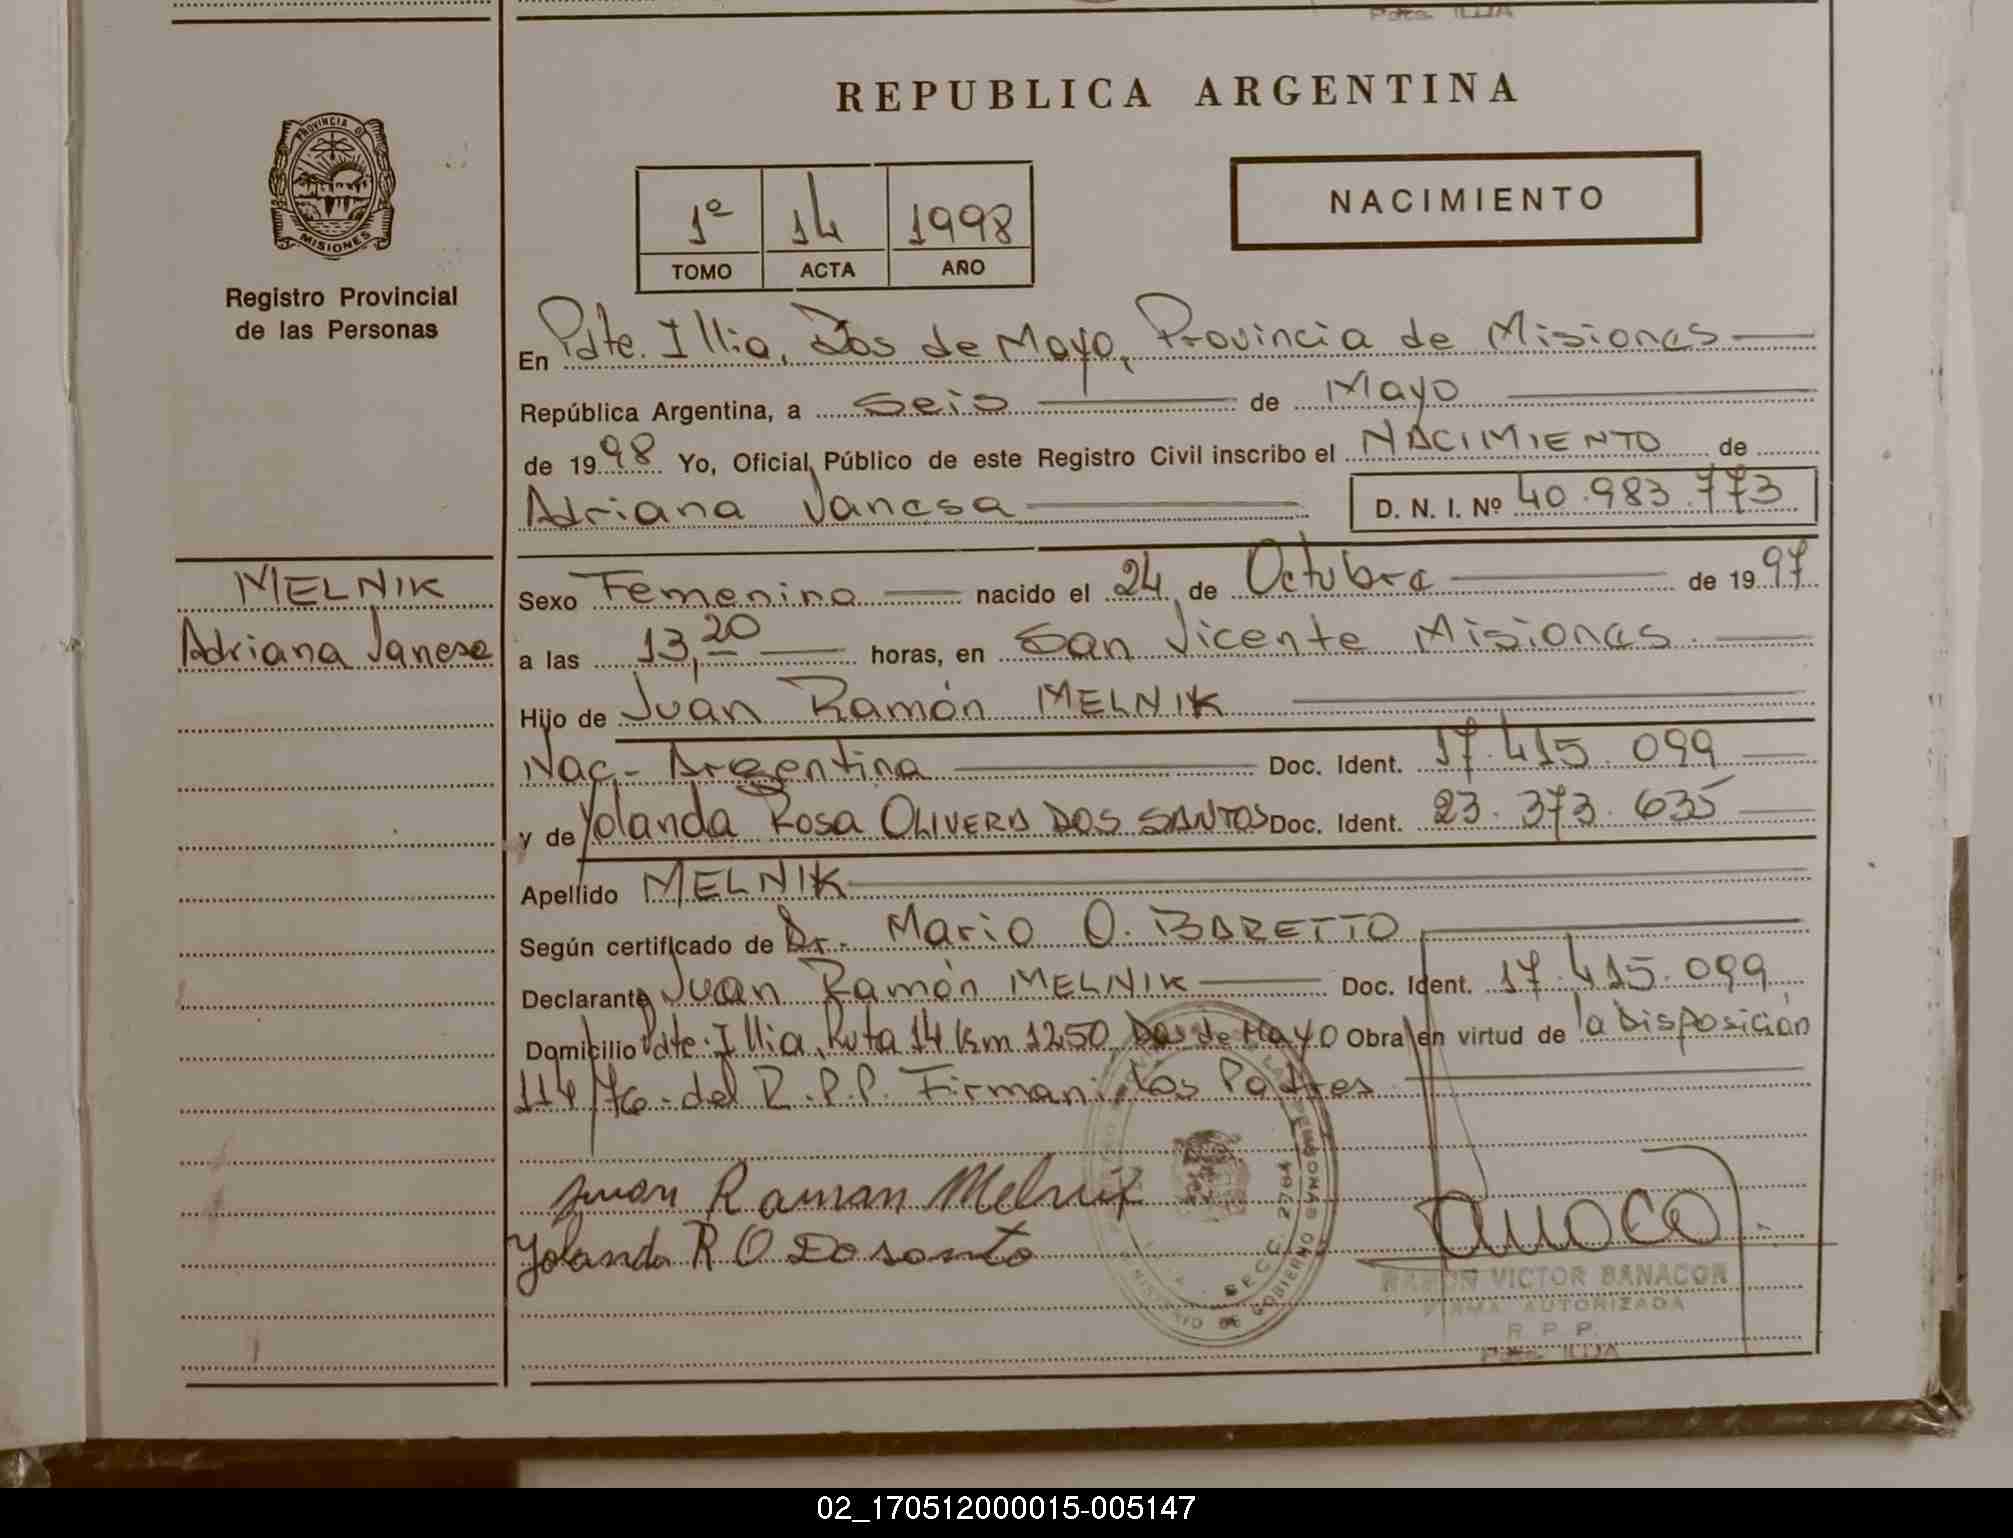 REPUBLICA ARGENTINA
PROVINCIA DE
MISIONES
Registro Provincial
de las Personas
1º 14 1998
TOMO ACTA AÑO
NACIMIENTO
En Pdte. Illia, Dos de Mayo, Provincia de Misiones
República Argentina, a seis de Mayo
de 1998 Yo, Oficial Público de este Registro Civil inscribo el NACIMIENTO de
Adriana Vanesa D. N. I. Nº 40.983.773
MELNIK
Adriana Vanesa
Sexo Femenino nacido el 24 de Octubre de 1997
a las 13,20 horas, en San Vicente Misiones.
Hijo de Juan Ramón MELNIK
Nac- Argentina Doc. Ident. 17.415.099
y de Yolanda Rosa OLIVERA DOS SANTOS Doc. Ident. 23.373.635
Apellido MELNIK
Según certificado de Dr. Mario O. BARETTO
Declarante Juan Ramón MELNIK Doc. Ident. 17.415.099
Domicilio Pdte. Illia, Ruta 14 Km 1250, Dos de Mayo Obra en virtud de la Disposición
114/76.- del R.P.P. Firman: los Padres
Juan Ramon Melnik
Yolanda R O Dosanto
SECC. 2794
DE GOBIERNO
RAMON VICTOR BANACOR
FIRMA AUTORIZADA
R. P. P.
Pdte. ILLIA
02_170512000015-005147